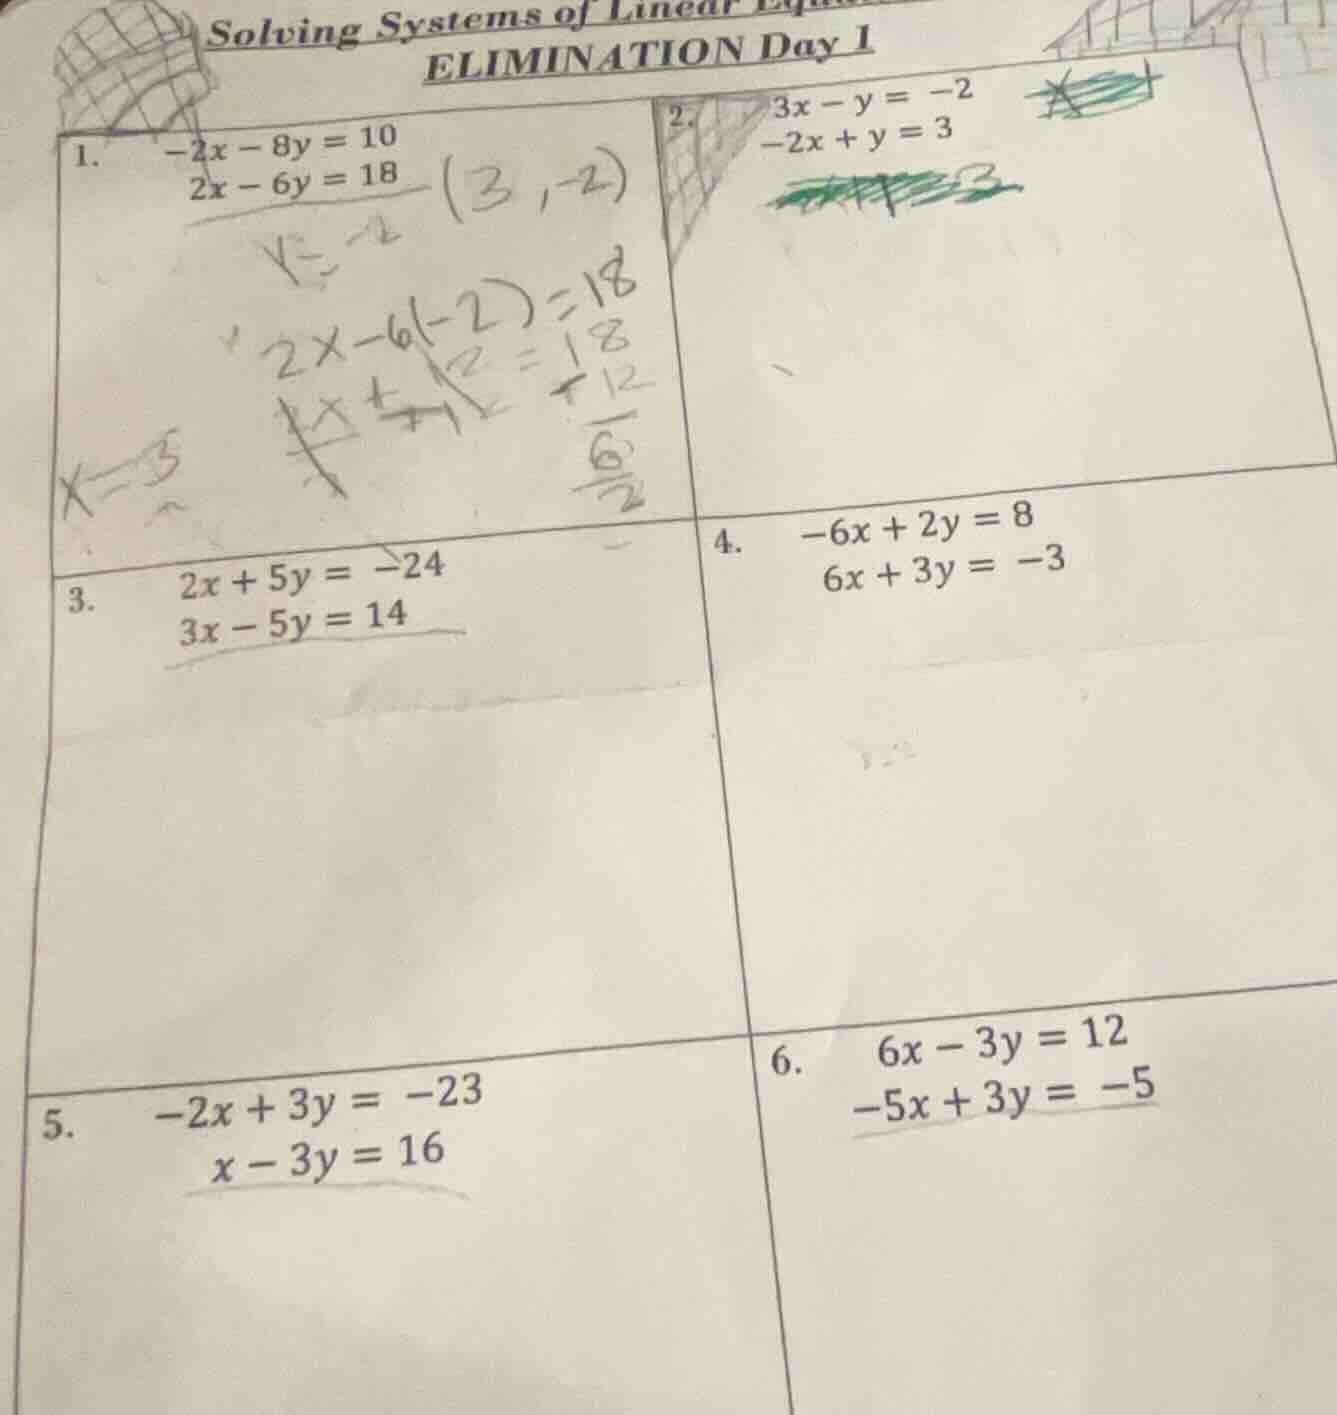 Solving Systems of Linear
ELIMINATION Day 1
1. −2x − 8y = 10
2x − 6y = 18
(3, -2)
y = -2
2x - 6(-2) = 18
2x + 12 = 18
+12 - 12
6
2
x = 3
2. 3x − y = −2
−2x + y = 3
3. 2x + 5y = −24
3x − 5y = 14
4. −6x + 2y = 8
6x + 3y = −3
5. −2x + 3y = −23
x − 3y = 16
6. 6x − 3y = 12
−5x + 3y = −5